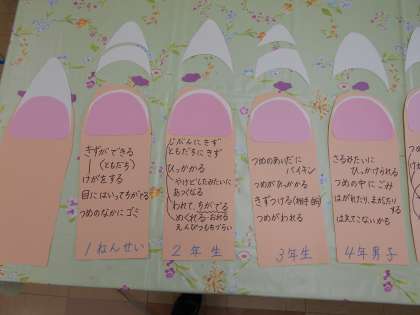 きずができる
(ともだち)
けがをする
目にはいってちがでる
つめのなかにゴミ
1ねんせい
じぶんにきず
ともだちにきず
ひっかかる
やけどしたみたいに
あつくなる
われて、ちがでる
めくれる・おれる
えんぴつもちづらい
2年生
つめのあいだに
バイキン
つめがひっかかる
きずつける(相手・自分)
つめがわれる
3年生
さるみたいに
ひっかけられる
つめの中にごみ
はがれたり、まがたり
する
はえてこないかも
4年男子